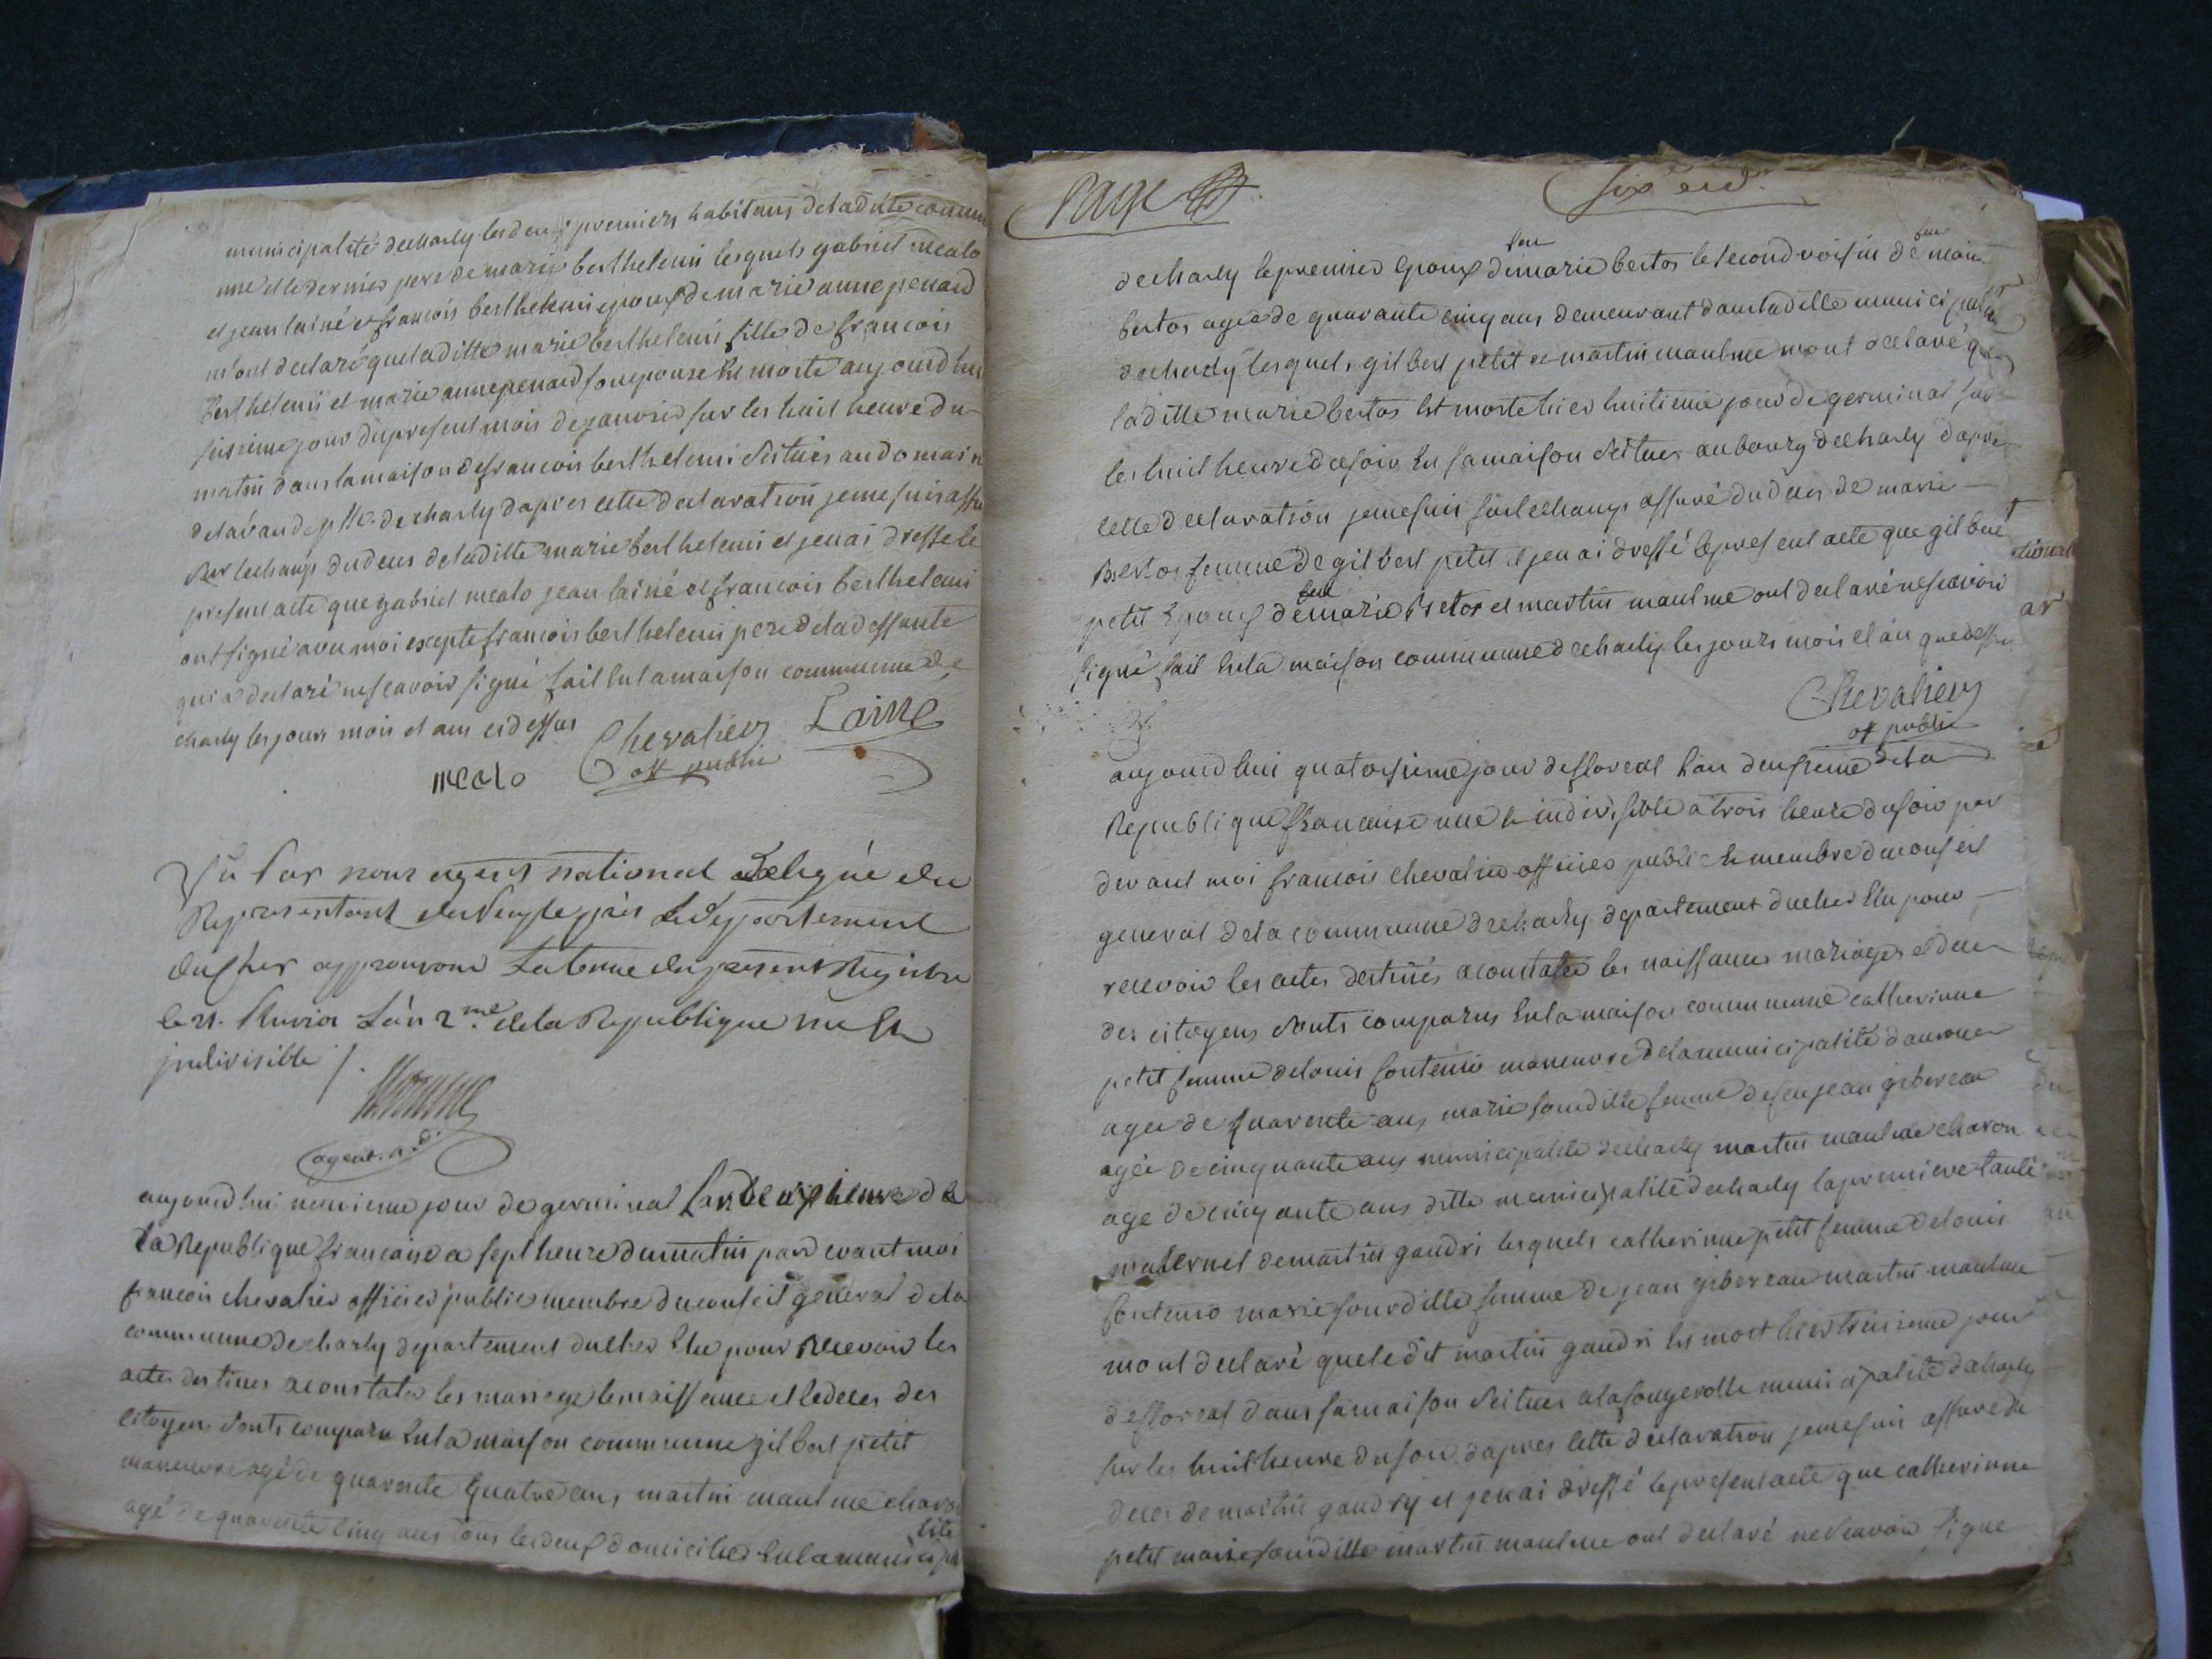 municipalité decharly les deux premiers habitans deladitte commu
nne et le dernier pere de marie berthelemi lesquels gabriel mealo
et jean lainé et francois berthelemi epoux de marie anne penard
m'ont declaré que laditte marie berthelemi fille de francois
berthelemi et marie anne penard son epouse Est morte aujourdhui
sisieme jour du present mois de janvier sur les huit heure du
matin dans la maison de francois berthelemi scituée au domain
decharly dapres cette declaration jeme suis assu
sur lechamp du deces deladitte marie berthelemi et jenai dressé le
present acte que gabriel mealo jean lainé et francois berthelemi
ont signé avec moi excepté francois berthelemi pere deladeffunte
qui a declaré nescavoir signé fait Enlamaison commune de
charly les jours mois et ans cidessus
Chevalier Lainé
mealo off public
Vu Par nous agent national Delegué du
Representant du Peuple près le Departement
du Cher approuvons la tenue du present Registre
le 21. Pluviose L'an 2.me dela Republique une Et
indivisible /.
agent. n.al
aujourdhui neuvieme jour de germinal Lan deuxieme de
la Republique francaise a sept heure du matin pardevant moi
francois chevalier officier public membre du conseil general dela
commune decharly departement ducher Elu pour Recevoir les
actes destines aconstater les mariage lesnaissance et ledeces des
citoyens sonts comparu Enlamaison commune gilbert petit
maneuvre agé de quarente quatre ans martin maulme charon
agé de quarente cinq ans tous lesdeux domicilies Enlamunicipa
lité
Page six eid
feu feu
decharly lepremier epoux demarie bertos le second voisin de marie
bertos agée de quarante cinq ans demeurant dans laditte municipalité
decharly lesquels gilbert petit et martin maulme mont declaré que
laditte marie bertos Est morte hier huitieme jour de germinal sur
les huit heure dusoir En samaison scituée aubourg decharly dapres
cette declaration jemesuis surlechamp assuré du deces de marie
Bertos femme de gilbert petit et jenai dressé lepresent acte que gilbert
feu
petit epoux demarie Bretos et martin maulme ont declaré nescavoir
signé fait Enla maison commune decharly les jours mois et an quedessus
Chevalier
off public
aujourdhui quatorsieme jour de floreal lan deuxieme dela
Republique francaise une et indivisible a trois heure dusoir par
devant moi francois chevalier officier public Et membre duconseil
general dela commune decharly departement ducher Elu pour
recevoir les actes destinés aconstater les naissances mariages et deces
des citoyens sonts comparus Enlamaison commune catherinne
petit femme delouis fontenio maneuvre delamunicipalité
agée de quarente ans marie sourdille femme defeu jean gibereau
agée decinquante ans municipalité decharly martin maulme charon
age decinquante ans ditte municipalité decharly lapremiere tante
maternel demartin gaudri lesquels catherinne petit femme delouis
fontenio marie sourdille femme de jean gibereau martin maulme
mont declaré queledit martin gaudri Est mort hier treisieme jour
defloreal dans samaison scituée alafougerolle municipalité decharly
sur les huit heure dusoir dapres cette declaration jemesuis assuré du
deces de martin gaudry et jenai dressé lepresent acte que catherinne
petit marie sourdille martin maulme ont declaré nescavoir signe